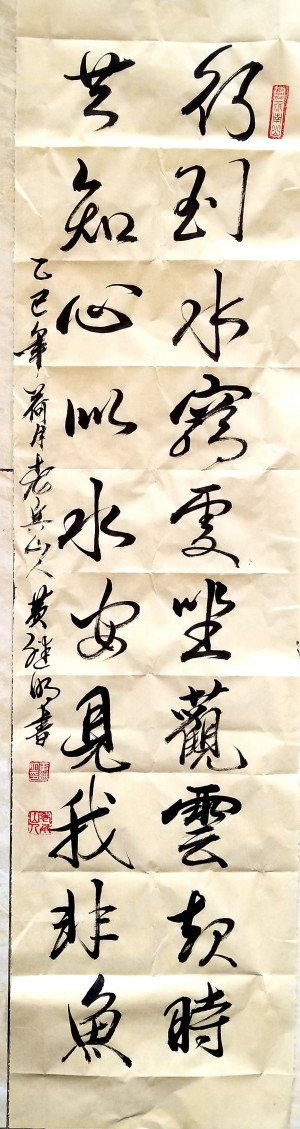 行到水窮處坐觀雲起時
共知心似水安見我非魚
乙巳年荷月老兵山人黄继明書